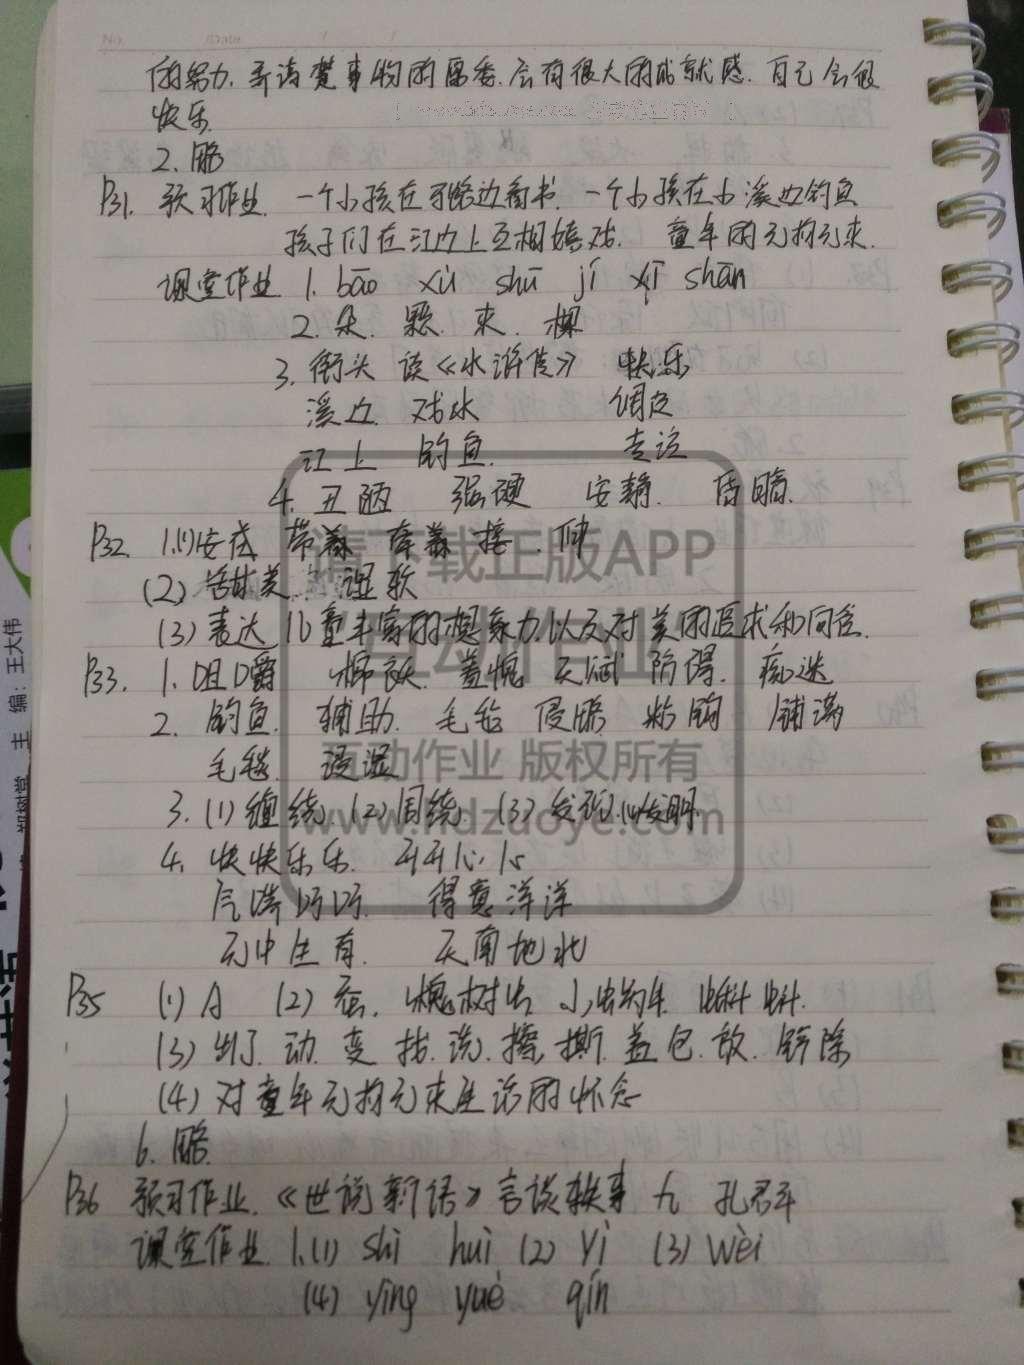 No. Date
的努力,弄清楚事物的奥秘,会有很大的成就感,自己会很
快乐.
2.略
P31. 预习作业. 一个小孩在马路边看书. 一个小孩在小溪边钓鱼
孩子们在江边上互相嬉戏. 童年的无拘无束.
课堂作业 1. bāo xù shū jí xī shān
2. 朵. 颗. 束. 棵
3. 街头 读《水浒传》 快乐
溪边 戏水
江上 钓鱼. 专注
4. 丑陋 强硬 安静. 清晰.
P32 1.(1)
(3) 表达儿童丰富的想象力,以及对美的追求和向往.
P33. 1. 咀嚼 羞愧 天赋 防碍. 痴迷
2. 钓鱼. 辅助. 毛毯 侵 铺满
毛毯. 浸湿
3. (1)缠绕. (2)围绕. (3)发现.(4)发明.
4. 快快乐乐. 开开心心
气喘吁吁. 得意洋洋
无中生有. 天南地北
P35 (1) A (2) 蚕. 槐树虫 小蜗牛 蝌蚪.
(3) 动. 变 洗. 擦. 撕. 盖 包. 放.
(4) 对童年无拘无束生活的怀念
6. 略.
P36 预习作业.《世说新语》言谈轶事 九 孔君平
课堂作业. 1.(1) shì huì (2) yì (3) wèi
(4) yīng yuè qín
请下载正版APP
互动作业
互动作业 版权所有
www.hdzuoye.com
主 编:王大伟